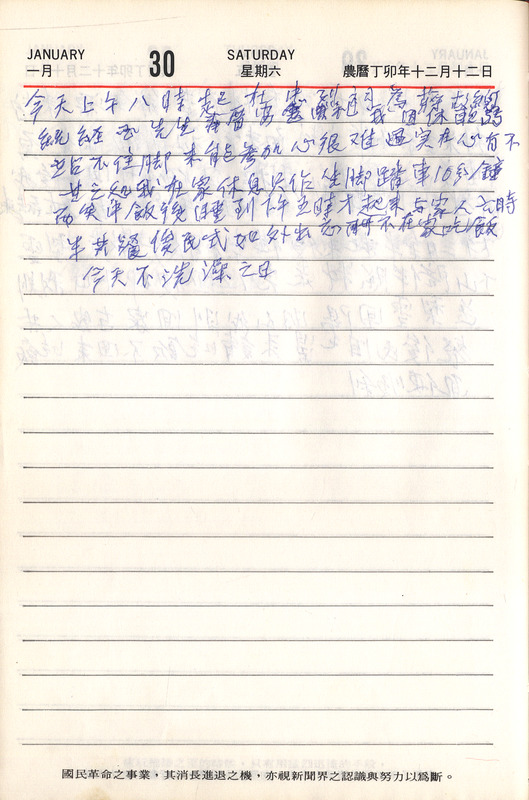 JANUARY 30 SATURDAY
一月 星期六 農曆丁卯年十二月十二日
今天上午八時起在忠烈祠為蔣故總
統經國先生 我因體弱
並站不住脚未能參加心很难過实在心有不
在家休息只作坐脚踏車10分鐘
兩次午飯後睡到下午五時才起來与家人六時
半共 俊民 如外出 不在家吃飯
今天不洗澡之日
國民革命之事業,其消長進退之機,亦視新聞界之認識與努力以為斷。